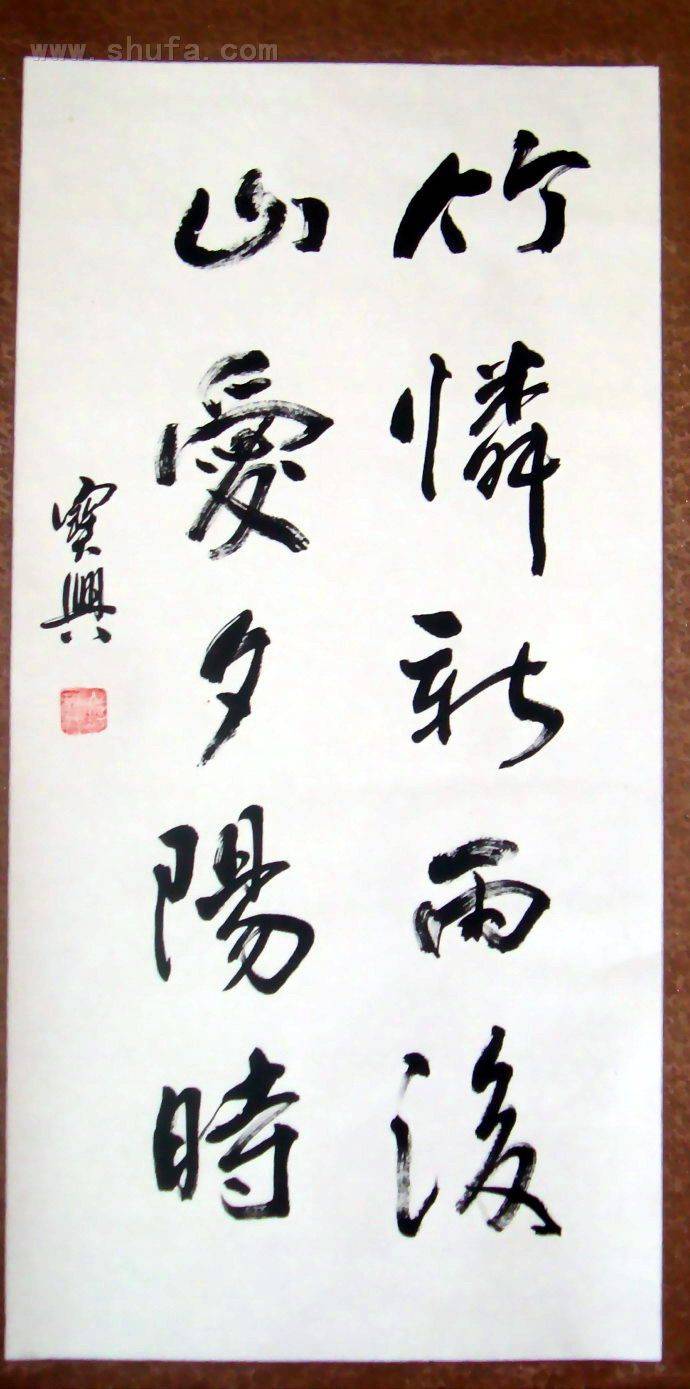 www.shufa.com
竹憐新雨後
山愛夕陽時
寶興